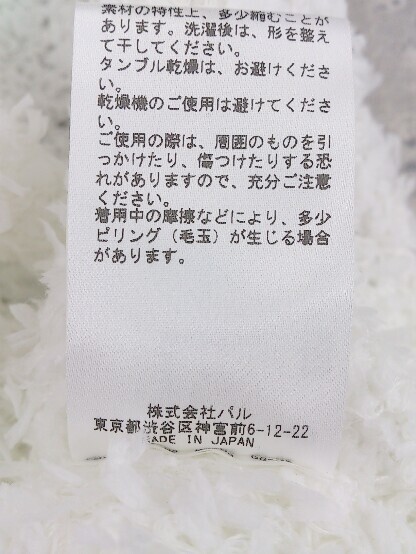 素材の特性上、多少縮むことが
あります。洗濯後は、形を整え
て干してください。
タンブル乾燥は、お避けくださ
い。
乾燥機のご使用は避けてくださ
い。
ご使用の際は、周囲のものを引
っかけたり、傷つけたりする恐
れがありますので、充分ご注意
ください。
着用中の摩擦などにより、多少
ピリング（毛玉）が生じる場合
があります。
株式会社パル
東京都渋谷区神宮前6-12-22
MADE IN JAPAN